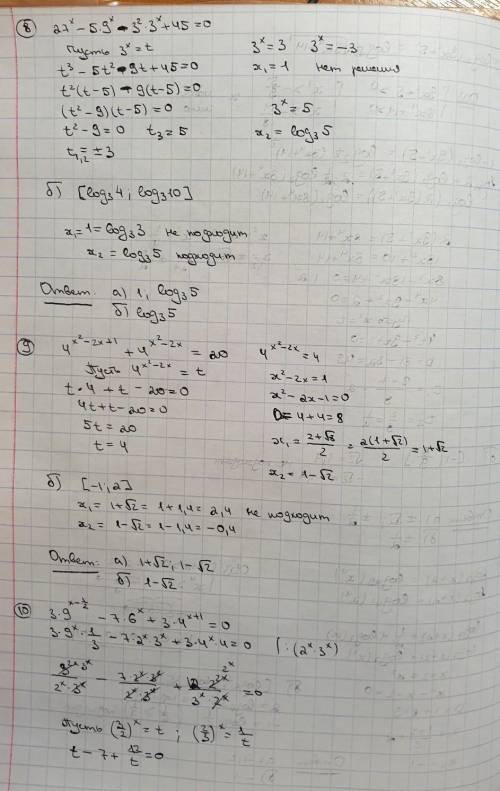 ⑧ 27ˣ − 5·9ˣ − 3²·3ˣ + 45 = 0
Пусть 3ˣ = t
t³ − 5t² − 9t + 45 = 0
t²(t−5) − 9(t−5) = 0
(t²−9)(t−5) = 0
t²−9 = 0   t₃ = 5
t₁,₂ = ±3
3ˣ = 3   3ˣ = −3
x₁ = 1   нет решения
3ˣ = 5
x₂ = log₃5
б) [log₃4 ; log₃10]
x₁ = 1 = log₃3 не подходит
x₂ = log₃5 подходит
Ответ: а) 1, log₃5
б) log₃5
⑨ 4^(x²−2x+1) + 4^(x²−2x) = 20
Пусть 4^(x²−2x) = t
t·4 + t − 20 = 0
4t + t − 20 = 0
5t = 20
t = 4
4^(x²−2x) = 4
x²−2x = 1
x²−2x−1 = 0
D = 4+4 = 8
x₁ = (2+√8)/2 = 2(1+√2)/2 = 1+√2
x₂ = 1−√2
б) [−1; 2]
x₁ = 1+√2 = 1+1,4 = 2,4 не подходит
x₂ = 1−√2 = 1−1,4 = −0,4
Ответ: а) 1+√2; 1−√2
б) 1−√2
⑩ 3·9^(x−½) − 7·6ˣ + 3·4^(x+1) = 0
3·9ˣ·1/3 − 7·2ˣ·3ˣ + 3·4ˣ·4 = 0   | : (2ˣ·3ˣ)
Пусть (3/2)ˣ = t ; (2/3)ˣ = 1/t
t − 7 + 12/t = 0